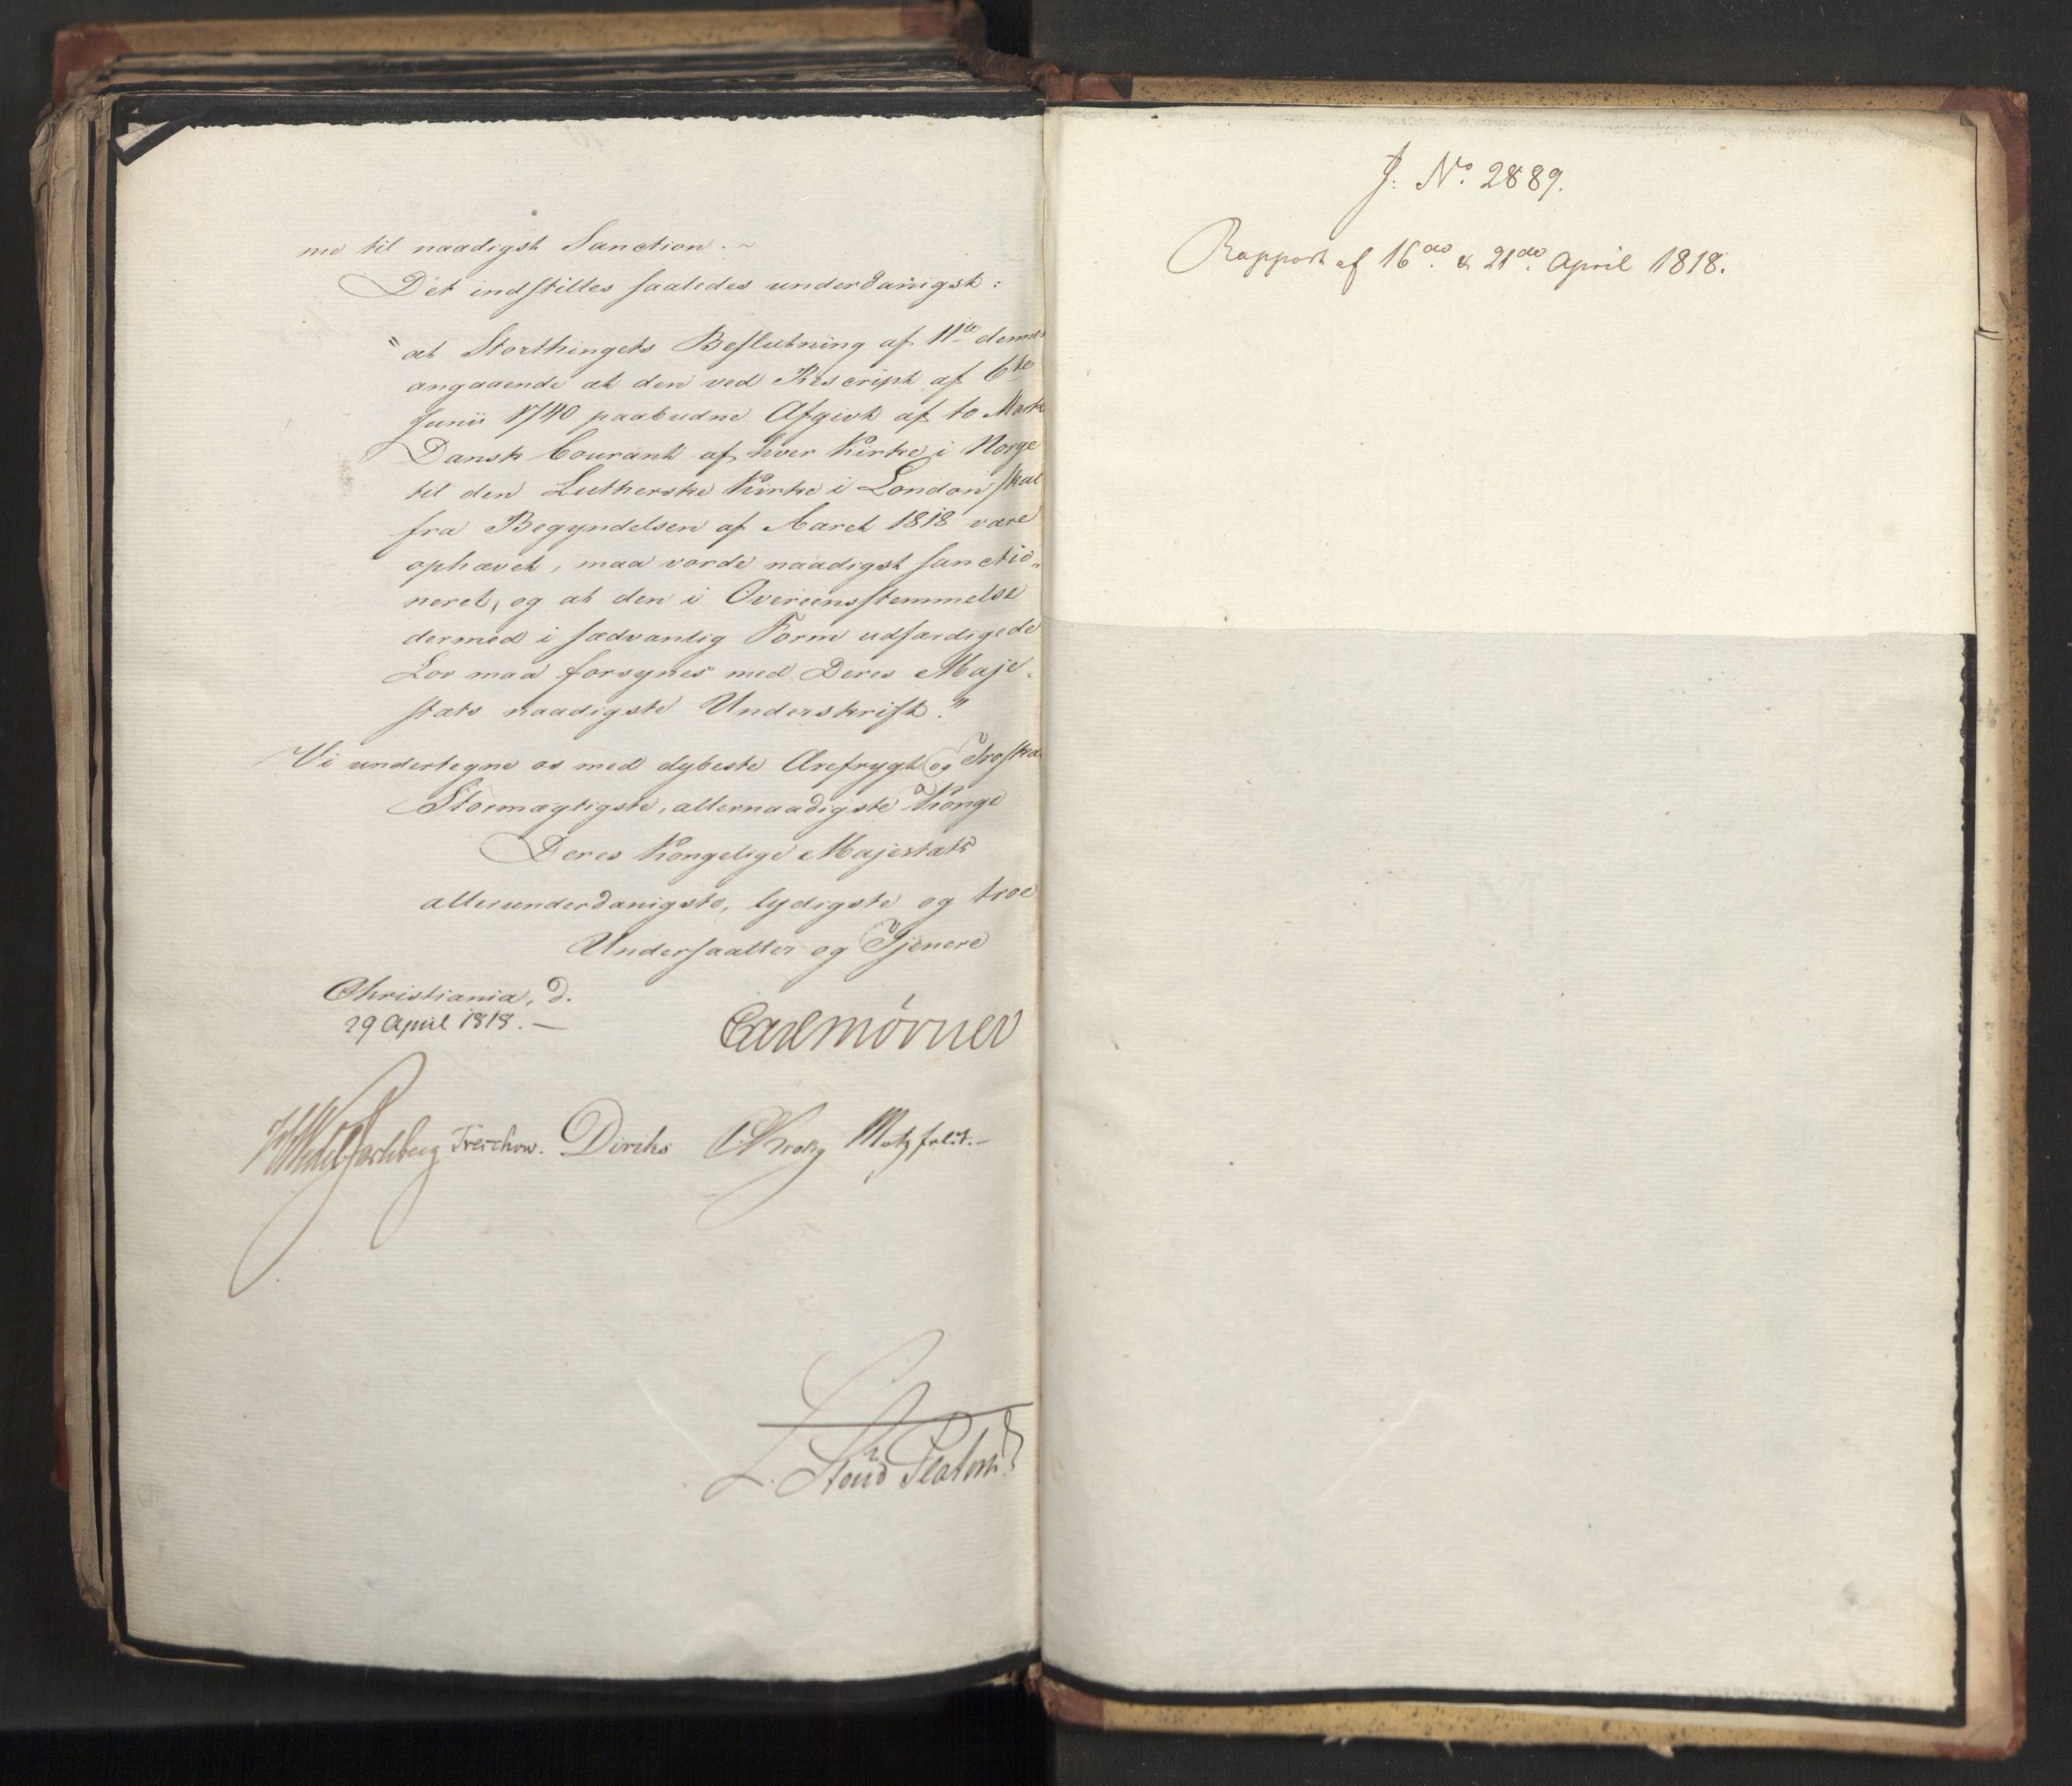 me til naadigst Sanction. ~
Det indstilles saaledes underdanigst:
"at Storthingets Beslutning af 11te dennes
angaaende at den ved Rescript af 6te
Junii 1740 paabudne Afgivt af to Mark
Dansk Courant af hver Kirke i Norge
til den Lutherske Kirke i London skal
fra Begyndelsen af Aaret 1818 være
ophævet, maa vorde naadigst sanctio„
neret, og at den i Overeensstemmelse
dermed i sædvanlig Form udfærdigede
Lov maa forsynes med Deres Maje„
stæts naadigste Underskrift."
Vi undertegne os med dybeste Ærefrygt og Troska
Stormægtigste, allernaadigste Konge
Deres Kongelige Majestæts
allerunderdanigste, lydigste og troe
Undersaatter og Tjenere
Christiania, d.
29 April 1818. —
Carl Mörner
HWedel Jarlsberg Treschow. Diriks CKrohg Motzfeldt. —
L. Stoud Platou
J: No. 2889.
Rapport af 16de & 21de April 1818.